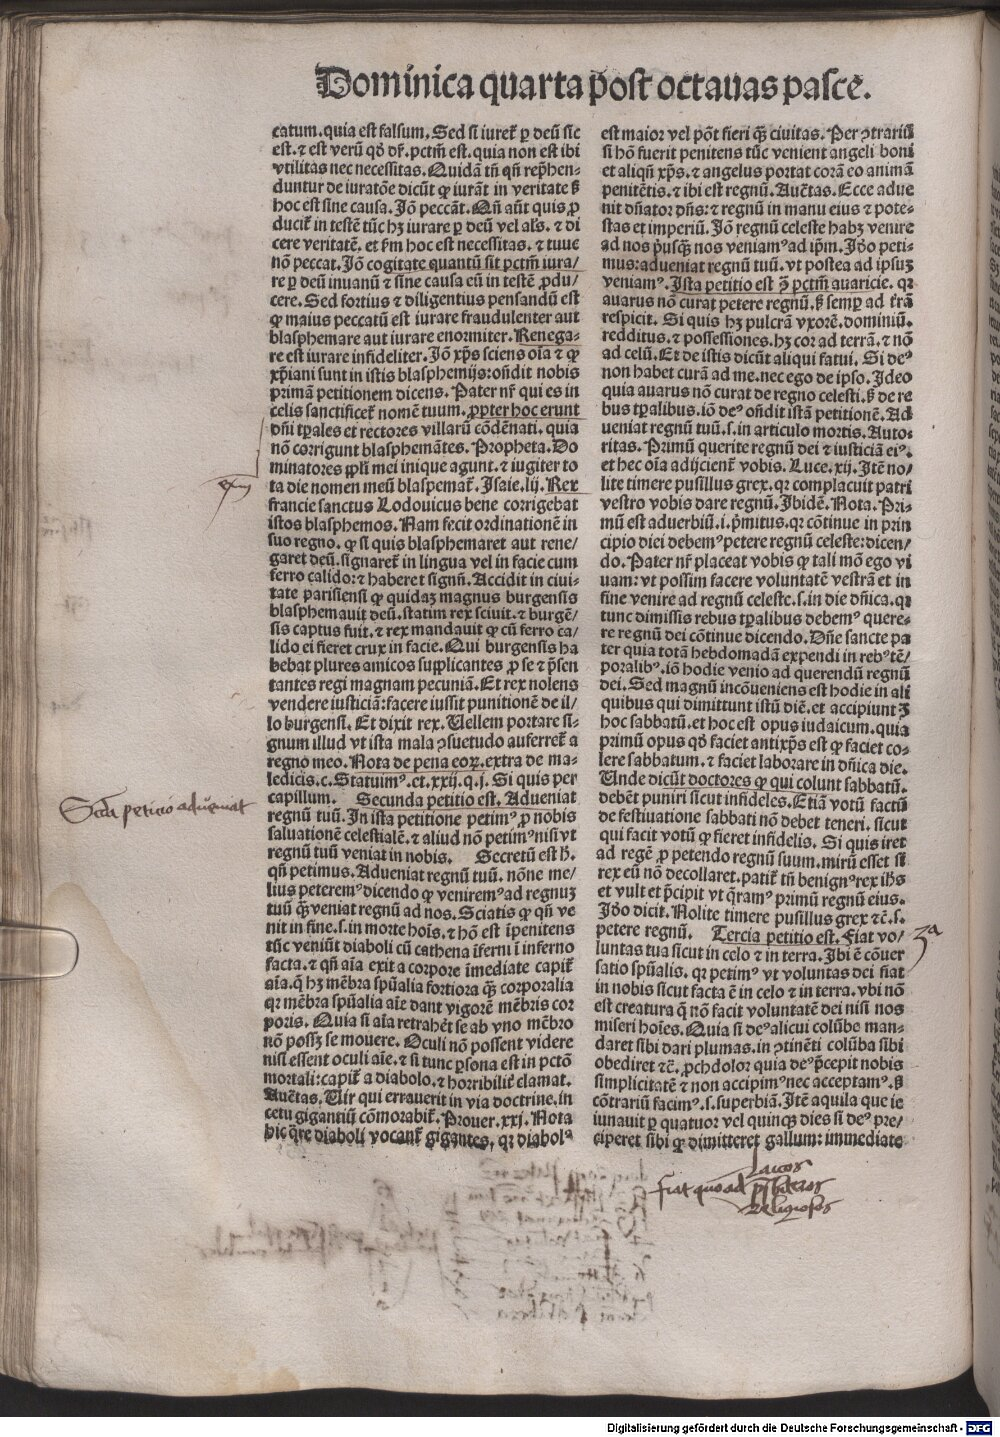 Dominica quarta post octauas pasce.
catum. quia est falsum. Sed si iuret᷑ ꝑ deū sic
est. ⁊ est verū qd̓ dr̄. pctm̄ est. quia non est ibi
vtilitas nec necessitas. Quidā tn̄ qn̄ rep̄hen⸗
duntur de iuratōe dicūt ꝙ iurāt in veritate ß
hoc est sine causa. Jō peccāt. Qn̄ aūt quis ꝓ
ducit᷑ in testē tūc hꝫ iurare ꝑ deū vel al̓s. ⁊ di
cere veritatē. et ꝓm hoc est necessitas. ⁊ tuuc
nō peccat. Jō cogitate quantū sit pctm̄ iura/
re ꝑ deū inuanū ⁊ sine causa eū in testē ꝓdu/
cere. Sed fortius ⁊ diligentius pensandū est
ꝙ maius peccatū est iurare fraudulenter aut
blasphemare aut iurare enormiter. Renega⸗
re est iurare infideliter. Jō xp̄s sciens oīa ⁊ ꝙ
xp̄iani sunt in istis blasphemijs: oñdit nobis
primā petitionem dicens. Pater nr̄ qui es in
celis sanctificet᷑ nomē tuum. ꝓpter hoc erunt
dn̄i tp̄ales et rectores villarū cōdēnati. quia
nō corrigunt blasphemātes. Propheta. Do
minatores pp̄li mei inique agunt. ⁊ iugiter to
ta die nomen meū blaspemat᷑. Jsaie. lij. Rex
francie sanctus Lodouicus bene corrigebat
istos blasphemos. Nam fecit ordinationē in
suo regno. ꝙ si quis blasphemaret aut rene/
garet deū. signaret᷑ in lingua vel in facie cum
ferro calido: ⁊ haberet signū. Accidit in ciui⸗
tate parisiensi ꝙ quidaꝫ magnus burgensis
blasphemauit deū. statim rex sciuit. ⁊ burgē/
sis captus fuit. ⁊ rex mandauit ꝙ cū ferro ca/
lido ei fieret crux in facie. Qui burgensis ha
bebat plures amicos supplicantes ꝓ se ⁊ p̄sen
tantes regi magnam pecuniā. Et rex nolens
vendere iusticiā: facere iussit punitionē de il/
lo burgensi. Et dixit rex. Uellem portare si⸗
gnum illud vt ista mala ꝯsuetudo auferret᷑ a
regno meo. Nota de pena eoꝝ. extra de ma⸗
ledicis. c. Statuimꝰ. et. xxij. q. j. Si quis per
capillum. Secunda petitio est. Adueniat
regnū tuū. Jn ista petitione petimꝰ ꝓ nobis
saluationē celestialē. ⁊ aliud nō petimꝰ nisi vt
regnū tuū veniat in nobis. Secretū est h̓.
qn̄ petimus. Adueniat regnū tuū. nōne me/
lius peteremꝰ dicendo ꝙ veniremꝰ ad regnuꝫ
tuū q̄ꝫ veniat regnū ad nos. Sciatis ꝙ qn̄ ve
nit in fine. s. in morte hoīs. ⁊ hō est īpenitens
tūc veniūt diaboli cū cathena īferni ī inferno
facta. ⁊ qn̄ aīa exit a corpore īmediate capit᷑
aīa. q̄ hꝫ mēbra spūalia fortiora q̄ꝫ corporalia
qꝛ mēbra spūalia aīe dant vigorē mēbris cor
poris. Quia si aīa retrahēt se ab vno mēbro
nō possꝫ se mouere. Oculi nō possent videre
nisi essent oculi aīe. ⁊ si tunc ꝑsona est in pctō
mortali: capit᷑ a diabolo. ⁊ horribilit᷑ clamat.
Auc̄tas. Uir qui errauerit in via doctrine. in
cetu gigantiū cōmorabit᷑. Prouer. xxj. Nota
hic q̄re diaboli vocant᷑ gigantes, qꝛ diabolꝰ
est maior vel pōt fieri q̄ꝫ ciuitas. Per ꝯtrariū
si hō fuerit penitens tūc venient angeli boni
et aliqn̄ xp̄s. ⁊ angelus portat corā eo animā
penitētis. ⁊ ibi est regnū. Auc̄tas. Ecce adue
nit dn̄ator dn̄s: ⁊ regnū in manu eius ⁊ pote⸗
stas et imperiū. Jō regnū celeste habꝫ venire
ad nos pusq̄ꝫ nos veniamꝰ ad ip̄m. Jd̓o peti⸗
mus: adueniat regnū tuū. vt postea ad ipsuꝫ
veniamꝰ. Jsta petitio est ꝯ̄ pctm̄ auaricie. qꝛ
auarus nō curat petere regnū. ß semꝑ ad t̓rā
respicit. Si quis hꝫ pulcrā vxorē. dominiū.
redditus. ⁊ possessiones. hꝫ cor ad terrā. ⁊ nō
ad celū. Et de istis dicūt aliqui fatui. Si deꝰ
non habet curā ad me. nec ego de ipso. Jdeo
quia auarus nō curat de regno celesti. ß de re
bus tp̄alibus. iō deꝰ oñdit istā petitionē. Ad
ueniat regnū tuū. s. in articulo mortis. Auto⸗
ritas. Primū querite regnū dei ⁊ iusticiā eiꝰ.
et hec oīa adijcient᷑ vobis. Luce. xij. Jtē no/
lite timere pusillus grex. qꝛ complacuit patri
vestro vobis dare regnū. Jbidē. Nota. Pri⸗
mū est aduerbiū. i. p̄mitus. qꝛ cōtinue in prin
cipio diei debemꝰ petere regnū celeste: dicen/
do. Pater nr̄ placeat vobis ꝙ tali mō ego vi
uam: vt possim facere voluntatē vestrā et in
fine venire ad regnū celeste. s. in die dn̄ica. qꝛ
tunc dimissis rebus tp̄alibus debemꝰ quere⸗
re regnū dei cōtinue dicendo. Dn̄e sancte pa
ter quia totā hebdomadā expendi in rebꝰ tē/
poralibꝰ. iō hodie venio ad querendū regnū
dei. Sed magnū incōueniens est hodie in ali
quibus qui dimittunt istū diē. et accipiunt ꝫ
hoc sabbatū. et hoc est opus iudaicum. quia
primū opus qd̓ faciet antixp̄s est ꝙ faciet co⸗
lere sabbatum. ⁊ faciet laborare in dn̄ica die.
Unde dicūt doctores ꝙ qui colunt sabbatū.
debēt puniri sicut infideles. Etiā votū factū
de festiuatione sabbati nō debet teneri. sicut
qui facit votū ꝙ fieret infidelis. Si quis iret
ad regē ꝓ petendo regnū suum. mirū esset si
rex eū nō decollaret. patit᷑ tn̄ benignꝰ rex ih̄s
et vult et p̄cipit vt q̄ramꝰ primū regnū eius.
Jd̓o dicit. Nolite timere pusillus grex ⁊c̄. s.
petere regnū. Tercia petitio est. Fiat vo/
luntas tua sicut in celo ⁊ in terra. Jbi ē cōuer
satio spūalis. qꝛ petimꝰ vt voluntas dei fiat
in nobis sicut facta ē in celo ⁊ in terra. vbi nō
est creatura q̄ nō facit voluntatē dei nisi nos
miseri hoīes. Quia si deꝰ alicui colūbe man⸗
daret sibi dari plumas. in ꝯtinēti colūba sibi
obediret ⁊c̄. ꝓchdolor quia deꝰ p̄cepit nobis
simplicitatē ⁊ non accipimꝰ nec acceptamꝰ. ß
cōtrariū facimꝰ. s. superbiā. Jtē aquila que ie
iunauit ꝑ quatuor vel quinqꝫ dies si deꝰ pre/
ciperet sibi ꝙ dimitteret gallum: immediate
Scd̄a petitio adueniat
3ᵃ
fiat quo ad
laicos
pb̄iteros
religiosos
Digitalisierung gefördert durch die Deutsche Forschungsgemeinschaft - DFG